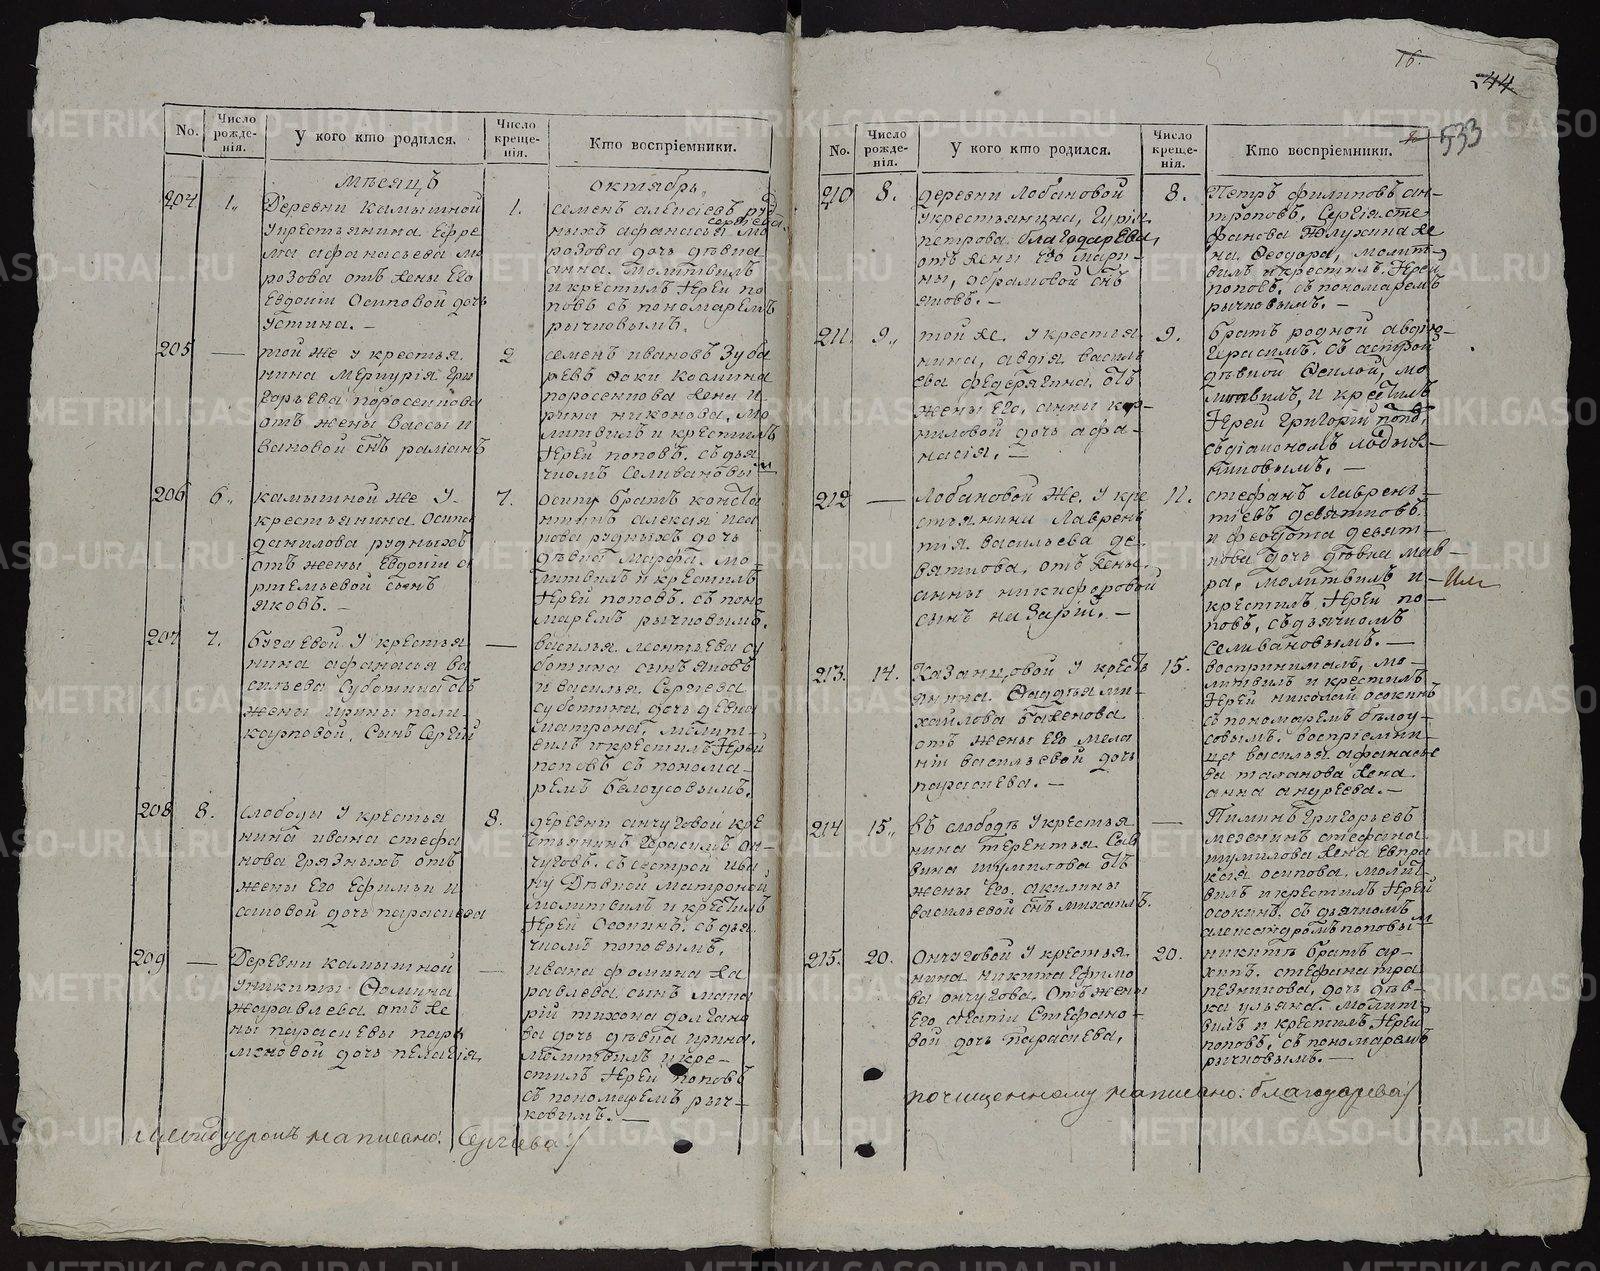 No.
Число рожде-нія.
У кого кто родился.
Число креще-нія.
Кто воспріемники.
Мѣсяцъ
октябрь.
204
1.
Деревни Камышной
у крестьянина Ефре
ма афанасьева мо
розова отъ жены его
Евдокіи Осиповой дочь
Устина. —
1.
семенъ алексѣевъ руд
сергѣева
ныхъ афанасья мо
розова дочь дѣвка
анна. молитвилъ
и крестилъ Іерей по
повъ съ пономаремъ
рычковымъ.
205
—
той же у крестья
нина Меркурія Гри
горьева поросенкова
отъ жены вассы и
вановой снъ
2
семенъ ивановъ Зуба
ревъ Фоки Космина
поросенкова жена и
рина никонова, мо
литвилъ и крестилъ
Іерей поповъ. съ дья
чкомъ селивановы
м
206
6.
камышной же у
крестьянина Осипа
данилова рудныхъ
отъ жены Евдокіи а
ртемьевой сынъ
яковъ. —
7.
осипу братъ конста
нтинъ алексѣя иса
кова рудныхъ дочь
дѣвка марфа. мо
литвилъ и крестилъ
Іерей поповъ. съ поно
маремъ рычковымъ.
207
7.
бугаевой у крестья
нина афанасья ва
сильева Суботина отъ
жены ирины поли
карповой. Сынъ Сергѣй
—
василья леонтьева су
ботина сынъ яковъ
и василья Сергѣева
суботина дочь девка
матрона. молит
вилъ и крестилъ Іерей
поповъ съ понома
ремъ белоусовымъ.
208
8.
слободы у крестья
нина ивана стефа
нова грязныхъ отъ
жены его Ефимьи и
саковой дочь параскева
8.
деревни анчуговой кре
стьянинъ Герасимъ он
чуговъ. съ сестрой ива
ну дѣвкой матроной,
молитвилъ и крестилъ
Іерей Осокинъ. съ дья
чкомъ поповымъ.
209
—
Деревни камышной
у никиты Фомина
журавлева отъ же
ны параскевы парѳ
меновой дочь пелагія
—
ивана фомина жу
равлева сынъ мака
рій тихона долгано
ва дочь дѣвка ирина.
молитвилъ и кре
стилъ Іерей поповъ
съ пономаремъ рыч
ковымъ. —
Между строкъ написано: Сергѣева /
16.
244
533
No.
Число рожде-нія.
У кого кто родился.
Число креще-нія.
Кто воспріемники.
210
8.
деревни Лобановой
у крестьянина, Гурія
петрова благодарева,
отъ жены его мари
ны, абрамовой снъ
яковъ. —
8.
Петръ филиповъ ан-
троповъ, Сергія сте
фанова
на Феодора, молит
вилъ и крестилъ Іерей
поповъ. съ пономаремъ
рычковымъ. —
211.
9.
той же. у крестья
нина, авдія василь
ева отъ
жены его, анны кор-
ниловой дочь афа-
насія. —
9.
братъ родной авдію
Герасимъ. съ сестрой
дѣвкой Феклой, мо
литвилъ, и крестилъ
Іерей Григорій попо,
съ діакономъ
212
—
Лобановой же. у кре
стьянина Лаврен
тія васильева де-
вяткова, отъ жены
анны никифоровой
сынъ назарій. —
11.
стефанъ лаврен
тіевъ девятковъ.
и федота девят
кова дочь дѣвка мав
ра, молитвилъ и
крестилъ Іерей по-
повъ, съ дьячкомъ
Селивановымъ. —
213.
14.
Казанцовой у кресть
янина. Фаддѣя ми-
хайлова баженова
отъ жены его мела
ніи васильевой дочь
параскева. —
15.
воспринималъ, мо-
литвилъ и крестилъ
Іерей николай осокинъ
съ пономаремъ бѣлоу-
совымъ. воспріемни-
ца василья афанасье
ва таланова жена
анна андреева. —
214
15.
въ слободѣ у крестья
нина терентья Сав
вина шумилова отъ
жены его. акилины
васильевой снъ михаилъ.
—
Пиминъ Григорьевъ
мезенинъ стефана
шумилова жена Евпра
ксія осипова. молит
вилъ и крестилъ Іерей
осокинъ. съ дьячкомъ
александромъ поповы
м
215.
20.
Ончуговой у крестья
нина никита Ефимо
ва ончугова. Отъ жены
его агапіи Стефано-
вой дочь параскева.
20.
никитѣ братъ ар-
хипъ. стефана тра
пезникова, дочь дѣв
ка ульяна. молит
вилъ и крестилъ Іерей
поповъ. съ пономаремъ
рычковымъ. —
почищенному написано: благодарева /
METRIKI.GASO-URAL.RU